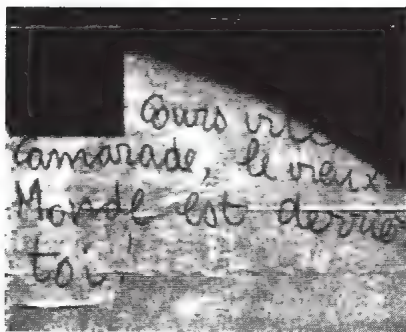 Cours vite
Camarade, le vieux
Monde est derriè
toi!